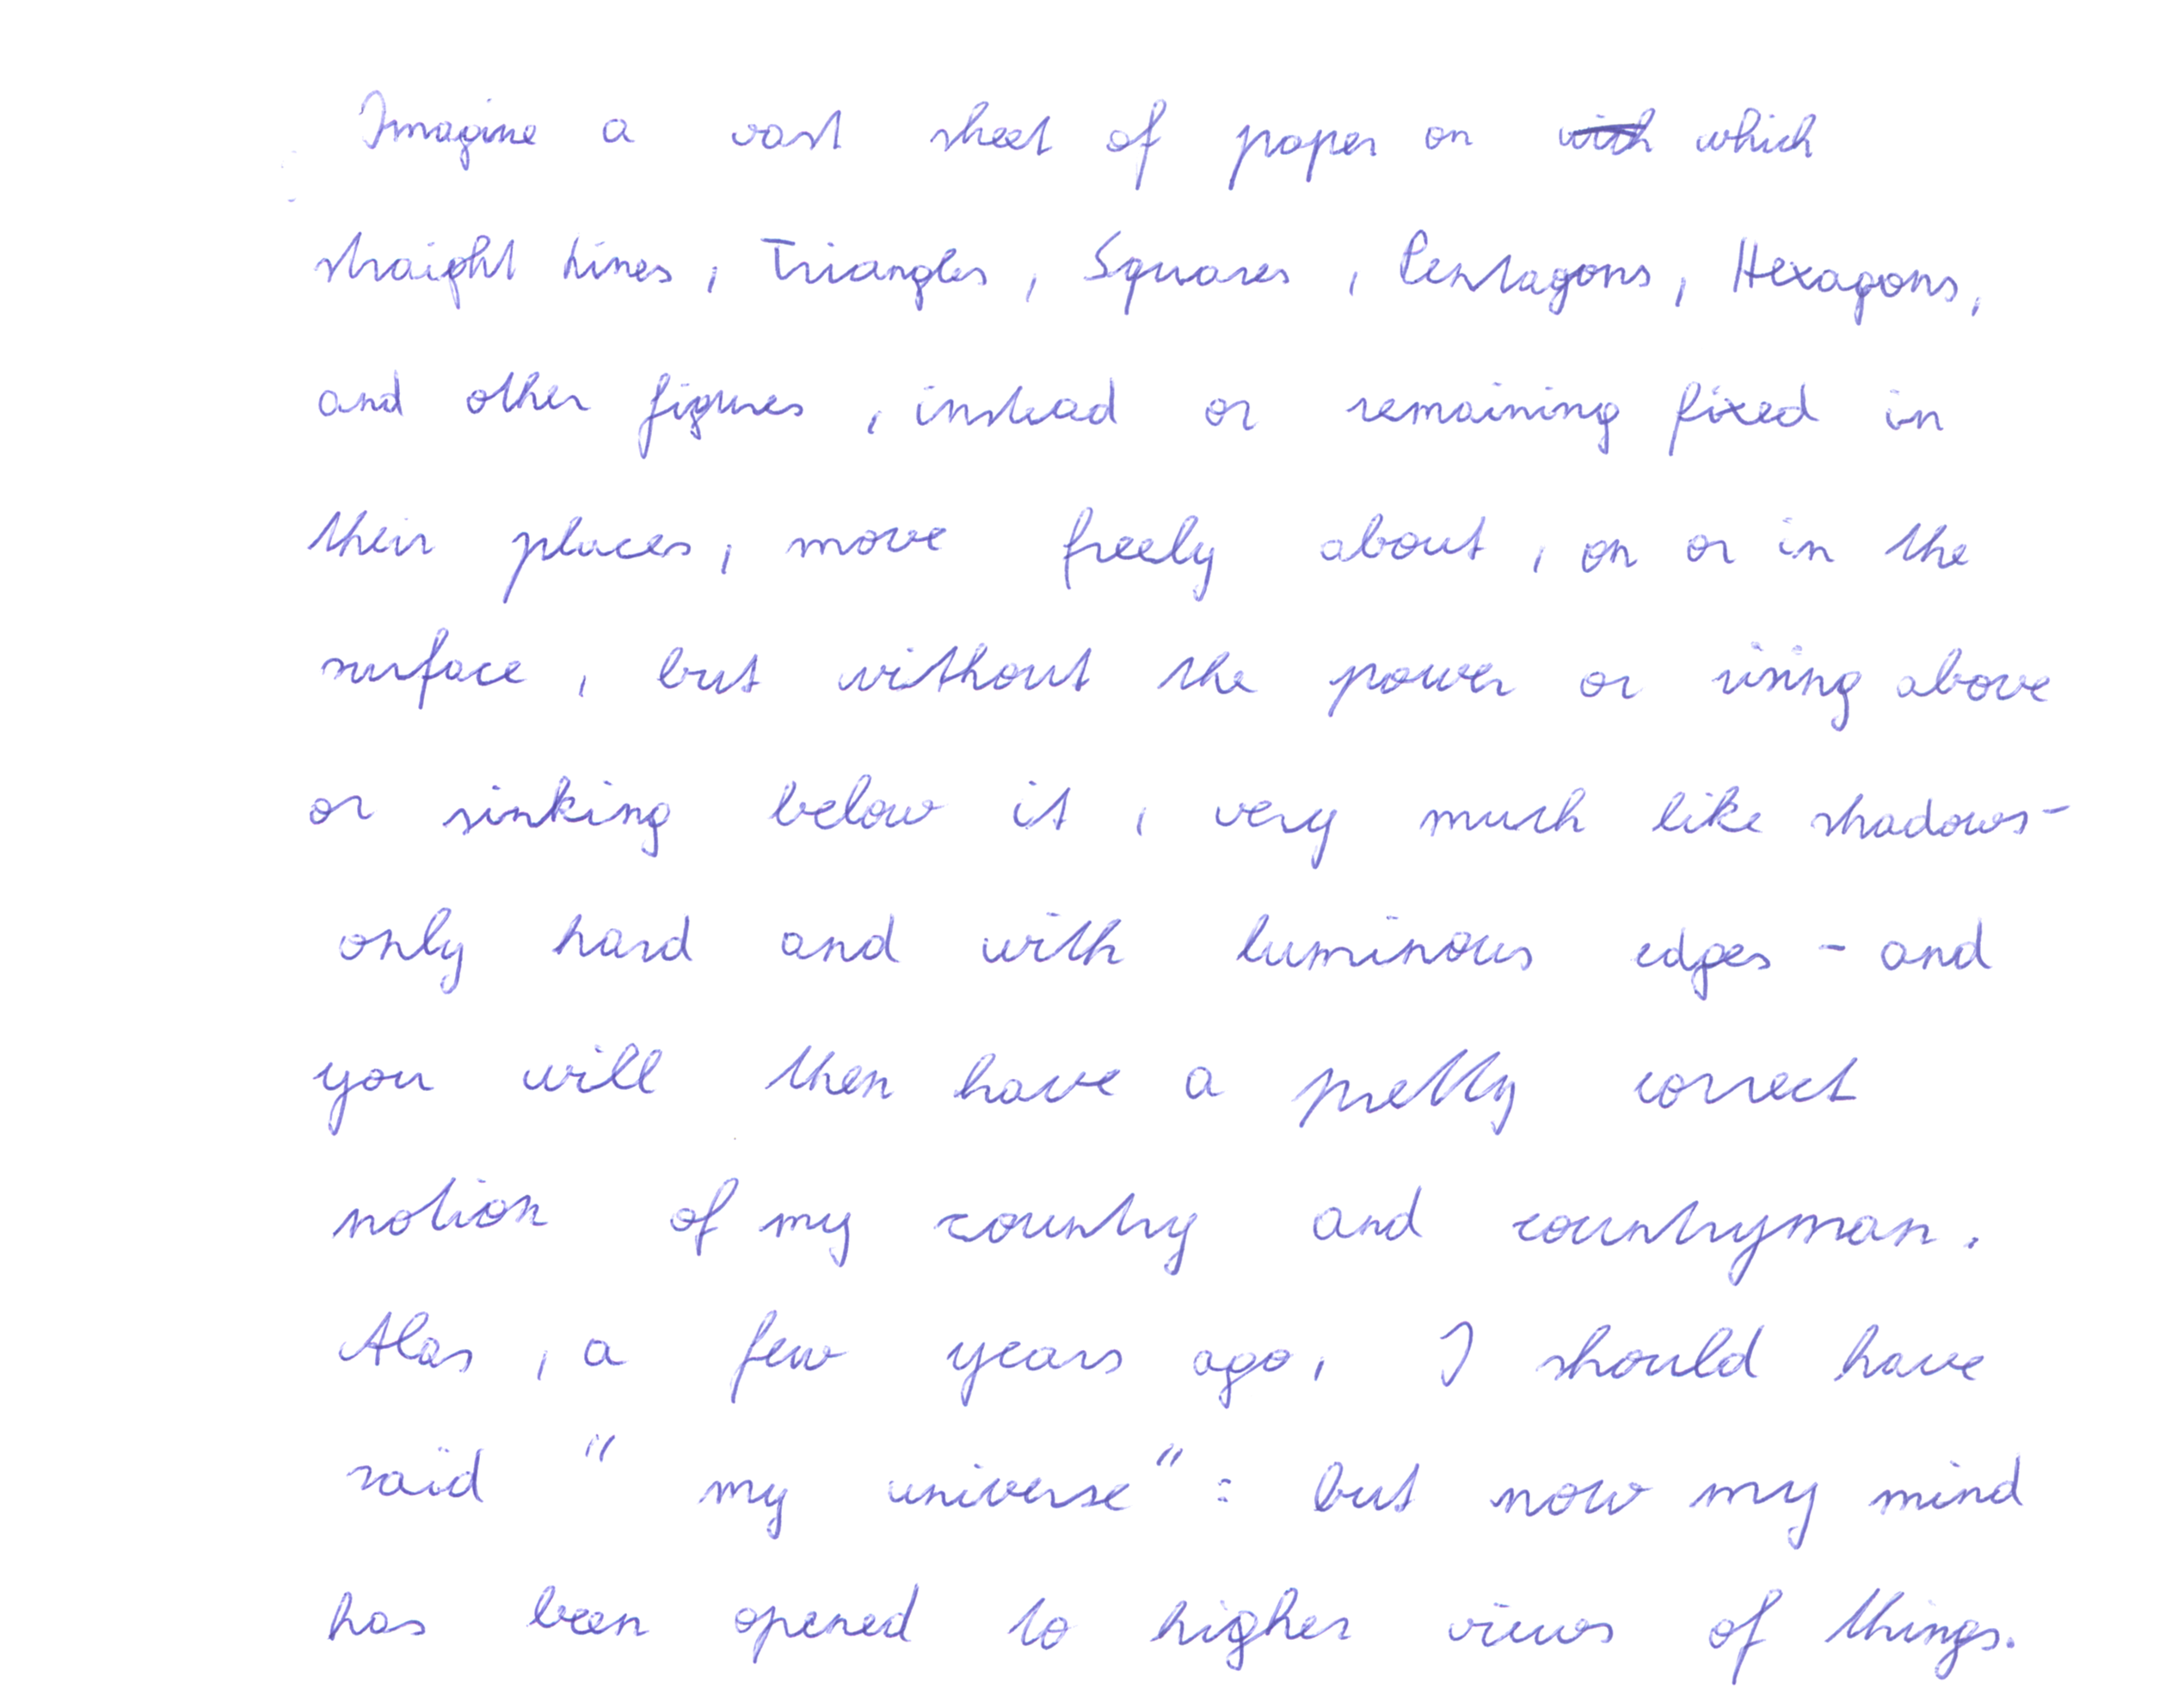 Imagine a vast sheet of paper on which
straight Lines, Triangles, Squares, Pentagons, Hexagons,
and other figures, instead or remaining fixed in
their places, move freely about, on or in the
surface, but without the power or rising above
or sinking below it, very much like shadows-
only hard and with luminous edges - and
you will then have a pretty correct
notion of my country and countryman.
Alas, a few years ago, I should have
said "my universe": but now my mind
has been opened to higher views of things.